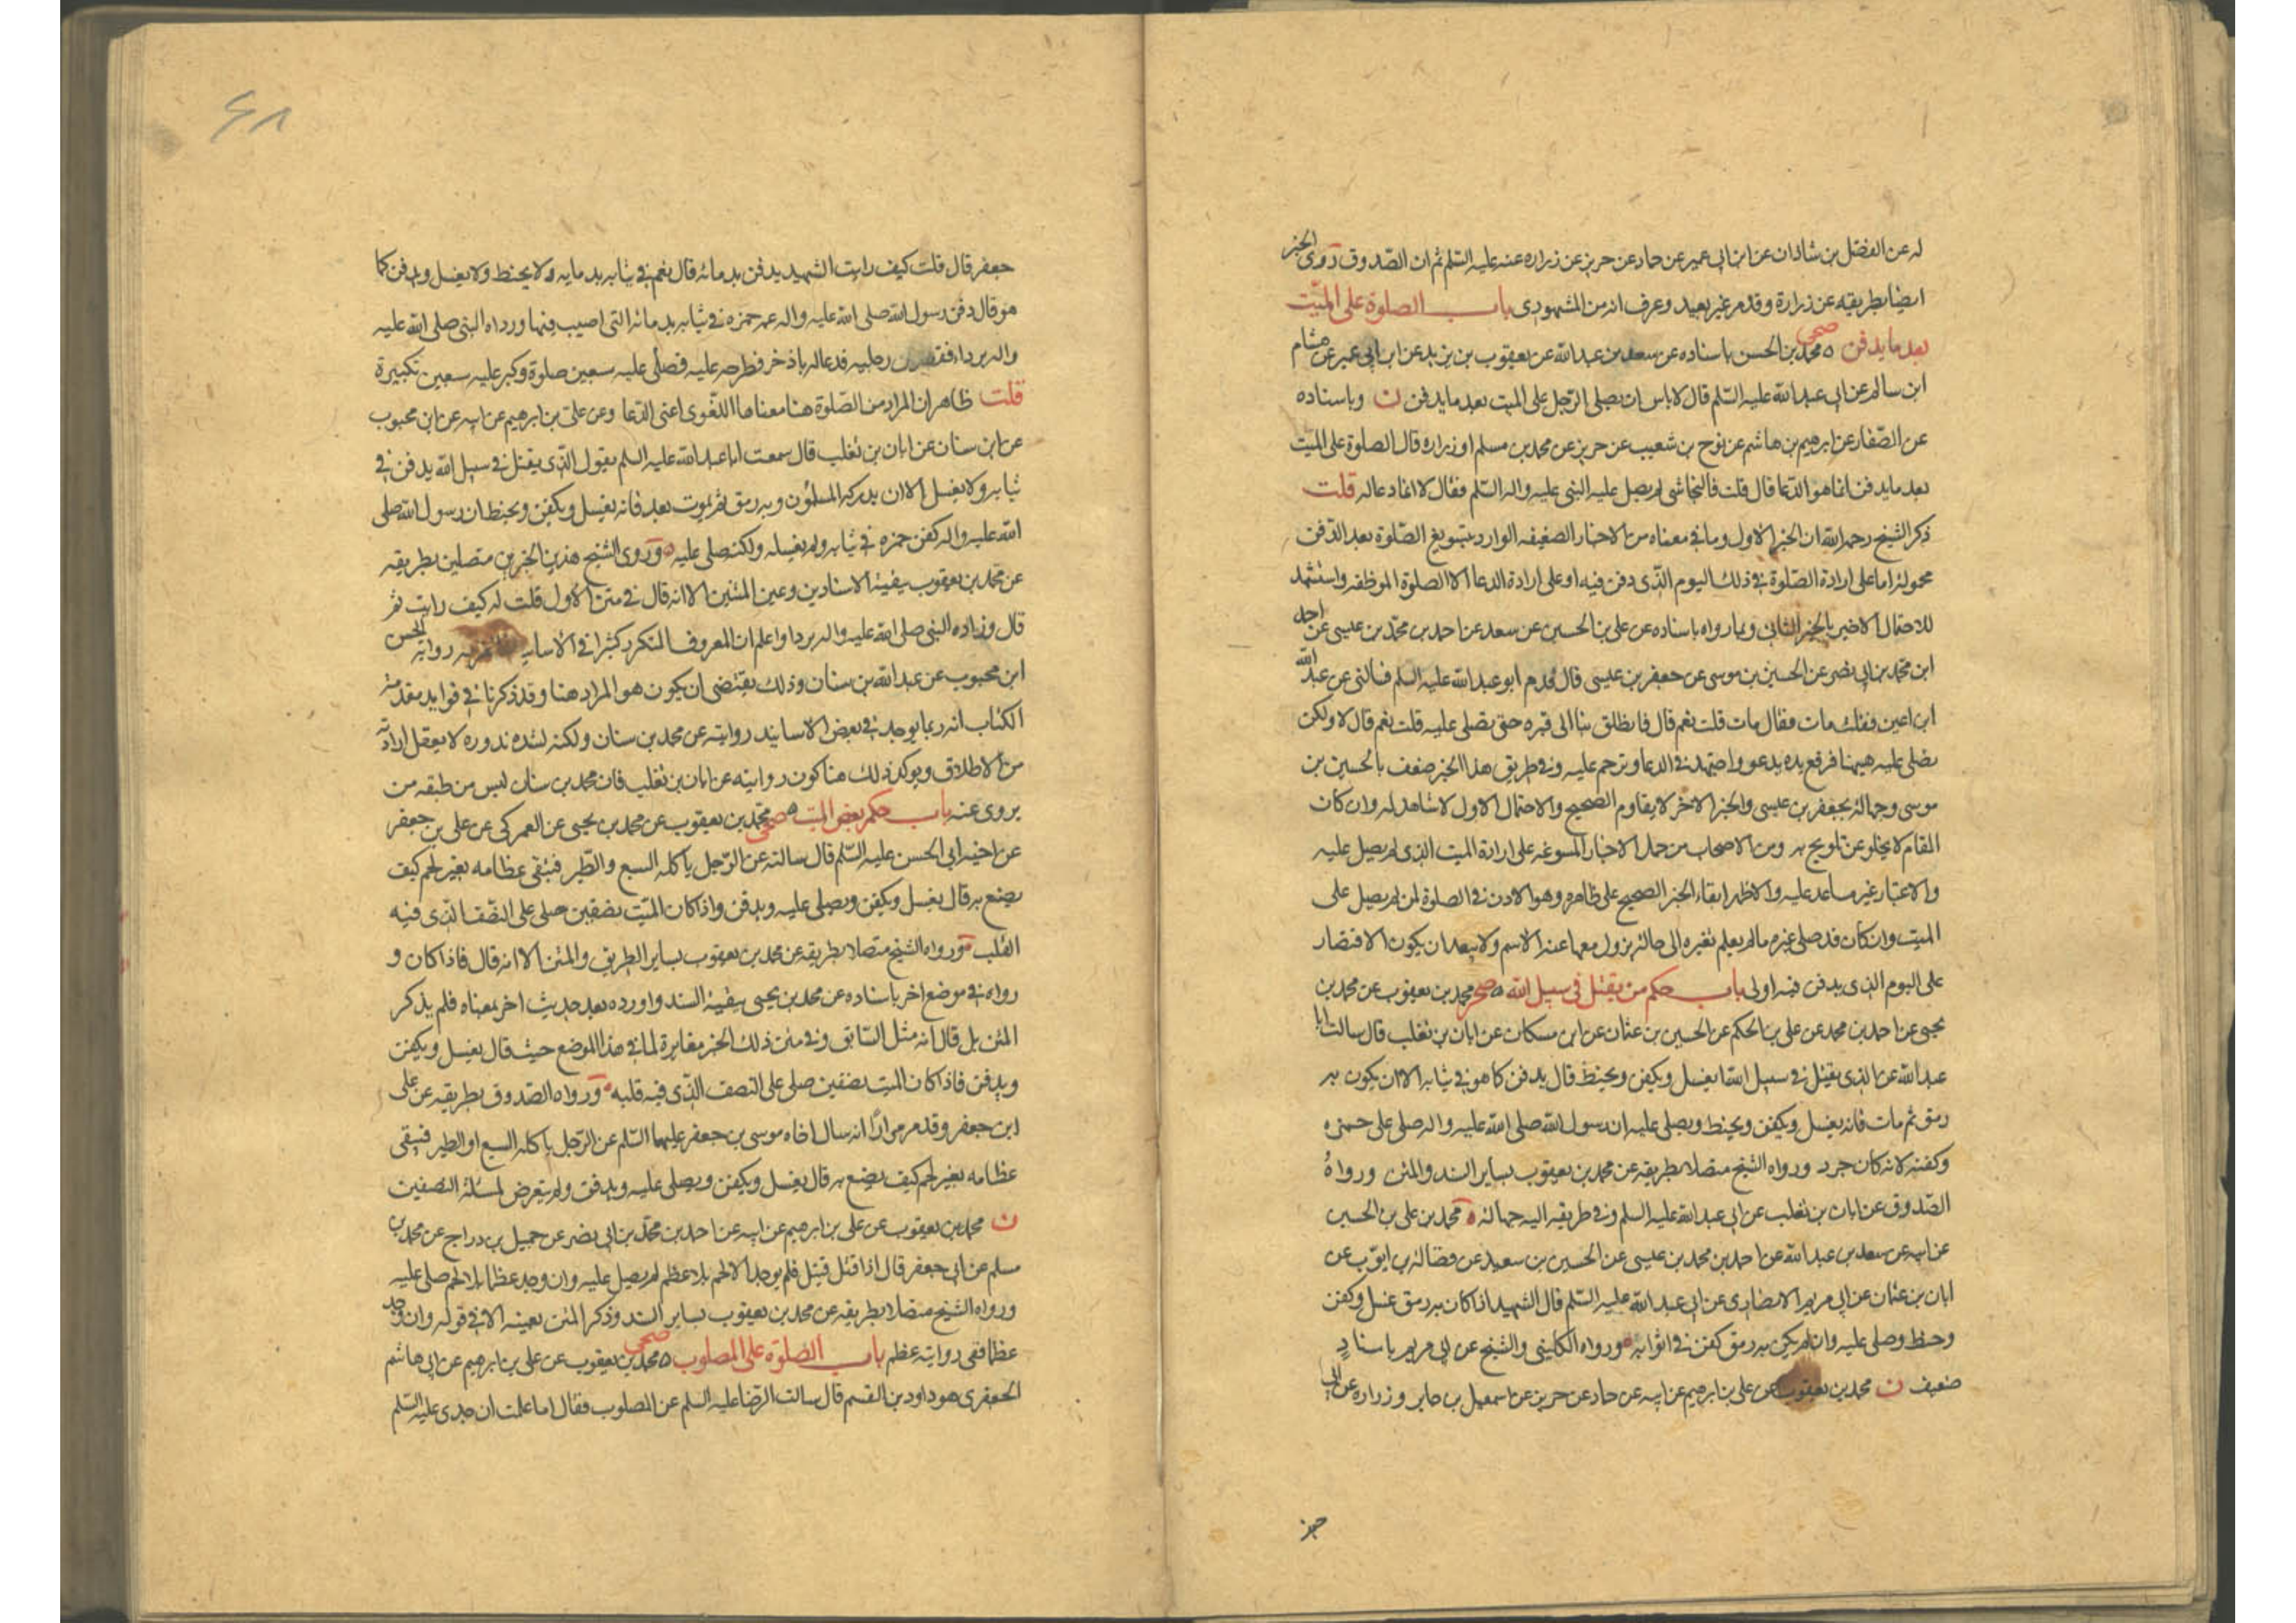 له عن الفضل بن شاذان عن ابن ابى عمير عن حماد عن حريز عن زراره عنه عليه السلم ثم ان الصدوق روى الخبر
ايضا بطريقه عن زرارة وقد مر غير بعيد وعرف انه من المشهورى باب الصلوة على الميت
بعد ما يدفن صحى محمد بن الحسن باسناده عن سعد بن عبد الله عن يعقوب بن يزيد عن ابن ابى عمير عن هشام
ابن سالم عن ابى عبد الله عليه السلم قال لا باس ان يصلى الرجل على الميت بعد ما يدفن ن وباسناده
عن الصفار عن ابرهيم بن هاشم عن نوح بن شعيب عن حريز عن محمد بن مسلم او زراره قال الصلوة على الميت
بعد ما يدفن انما هو الدعا قال قلت فالنجاشى لم يصل عليه النبى عليه واله السلم فقال لا انما دعا له قلت
ذكر الشيخ رحمه الله ان الخبر الاول وما فى معناه من الاخبار الضعيفه الوارد بتسويغ الصلوة بعد الدفن
محمولة اما على ارادة الصلوة فى ذلك اليوم الذى دفن فيه او على ارادة الدعا لا الصلوة الموظفه واستشهد
للاحتمال الاخير بالخبر الثانى وبما رواه باسناده عن على بن الحسين عن سعد عن احمد بن محمد بن عيسى عن احمد
ابن محمد بن ابى نصر عن الحسين بن موسى عن جعفر بن عيسى قال قدم ابو عبد الله عليه السلم فسالنى عن عبد الله
ابن اعين فقلت مات فقال مات قلت نعم قال فانطلق بنا الى قبره حتى نصلى عليه قلت نعم قال لا ولكن
نصلى عليه هيهنا فرفع يده يدعو واجتهد فى الدعا وترحم عليه وفى طريق هذا الخبر ضعف بالحسين بن
موسى وجهالة بجعفر بن عيسى والخبر الاخر لا يقاوم الصحيح والاحتمال الاول لا شاهد له وان كان
المقام لا يخلو عن تلويح به ومن الاصحاب من حمل الاخبار المسوغه على ارادة الميت الذى لم يصل عليه
والاعتبار غير مساعد عليه والاظهر ابقاء الخبر الصحيح على ظاهره وهو الاذن فى الصلوة لمن لم يصل على
الميت وان كان قد صلى غيره ما لم يعلم تغيره الى حالة يزول معها عنه الاسم ولا يبعد ان يكون الاقتصار
على اليوم الذى يدفن فيه اولى باب حكم من يقتل فى سبيل الله صحر محمد بن يعقوب عن محمد بن
يحيى عن احمد بن محمد عن على بن الحكم عن الحسين بن عثمان عن ابن مسكان عن ابان بن تغلب قال سالت ابا
عبد الله عن الذى يقتل فى سبيل الله ايغسل ويكفن ويحنط قال يدفن كما هو فى ثيابه الا ان يكون به
رمق ثم مات فانه يغسل ويكفن ويحنط ويصلى عليه ان رسول الله صلى الله عليه واله صلى على حمزه
وكفنه لانه كان جرد ورواه الشيخ متصلا بطريقه عن محمد بن يعقوب بساير السند والمتن ورواه
الصدوق عن ابان بن تغلب عن ابى عبد الله عليه السلم وفى طريقه اليه جهالة محمد بن على بن الحسين
عن ابيه عن سعد بن عبد الله عن احمد بن محمد بن عيسى عن الحسين بن سعيد عن فضالة بن ايوب عن
ابان بن عثمان عن ابى مريم الانصارى عن ابى عبد الله عليه السلم قال الشهيد اذا كان به رمق غسل وكفن
وحنط وصلى عليه وان لم يكن به رمق كفن فى اثوابه ورواه الكلينى والشيخ عن ابى مريم باسناد
ضعيف ن محمد بن يعقوب عن على بن ابرهيم عن ابيه عن حماد عن حريز عن اسمعيل بن جابر وزراره عن ابى
۶۸
جعفر قال قلت كيف رايت الشهيد يدفن بدمائه قال نعم فى ثيابه بدمايه ولا يحنط ولا يغسل ويدفن كما
هو قال دفن رسول الله صلى الله عليه واله عمه حمزه فى ثيابه بدمائه التى اصيب فيها ورداه النبى صلى الله عليه
واله برداء فقصر عن رجليه فدعا له باذخر فطرحه عليه فصلى عليه سبعين صلوة وكبر عليه سبعين تكبيرة
قلت ظاهر ان المراد من الصلوة هنا معناها اللغوى اعنى الدعا وعن على بن ابرهيم عن ابيه عن ابن محبوب
عن ابن سنان عن ابان بن تغلب قال سمعت ابا عبد الله عليه السلم يقول الذى يقتل فى سبيل الله يدفن فى
ثيابه ولا يغسل الا ان يدركه المسلمون وبه رمق ثم يموت بعد فانه يغسل ويكفن ويحنط ان رسول الله صلى
الله عليه واله كفن حمزه فى ثيابه ولم يغسله ولكنه صلى عليه وروى الشيخ هذين الخبرين متصلين بطريقه
عن محمد بن يعقوب ببقية الاسنادين وعين المتنين الا انه قال فى متن الاول قلت له كيف رايت ثم
قال وزاده النبى صلى الله عليه واله بردا واعلم ان المعروف المتكرر كثيرا فى الاسانيد روايه الحسن
ابن محبوب عن عبد الله بن سنان وذلك يقتضى ان يكون هو المراد هنا وقد ذكرنا فى فوايد مقدمة
الكتاب انه ربما يوجد فى بعض الاسانيد روايته عن محمد بن سنان ولكنه لشده ندوره لا يعقل ارادته
من الاطلاق ويوكد ذلك هنا كون روايته عن ابان بن تغلب فان محمد بن سنان ليس من طبقه من
يروى عنه باب حكم بعض الميت صحى محمد بن يعقوب عن محمد بن يحيى عن العمركى عن على بن جعفر
عن اخيه ابى الحسن عليه السلم قال سالته عن الرجل ياكله السبع والطير فتبقى عظامه بغير لحم كيف
يصنع به قال يغسل ويكفن ويصلى عليه ويدفن واذا كان الميت نصفين صلى على النصف الذى فيه
القلب ورواه الشيخ متصلا بطريقه عن محمد بن يعقوب بساير الطريق والمتن الا انه قال فاذا كان و
رواه فى موضع اخر باسناده عن محمد بن يحيى ببقية السند واورده بعد حديث اخر بمعناه فلم يذكر
المتن بل قال انه مثل السابق وفى متن ذلك الخبر مغايرة لما فى هذا الموضع حيث قال يغسل ويكفن
ويدفن فاذا كان الميت نصفين صلى على النصف الذى فيه قلبه ورواه الصدوق بطريقه عن على
ابن جعفر وقد مر مرارا انه سال اخاه موسى بن جعفر عليهما السلم عن الرجل ياكله السبع او الطير فتبقى
عظامه بغير لحم كيف يصنع به قال يغسل ويكفن ويصلى عليه ويدفن ولم يتعرض لمسئلة النصفين
ن محمد بن يعقوب عن على بن ابرهيم عن ابيه عن احمد بن محمد بن ابى نصر عن جميل بن دراج عن محمد بن
مسلم عن ابى جعفر قال اذا قتل قتيل فلم يوجد الا لحم بلا عظم لم يصل عليه وان وجد عظما بلا لحم صلى عليه
ورواه الشيخ متصلا بطريقه عن محمد بن يعقوب بساير السند وذكر المتن بعينه الا فى قوله وان وجد
عظما ففى روايته عظم باب الصلوة على المصلوب صحى محمد بن يعقوب عن على بن ابرهيم عن ابى هاشم
الجعفرى هو داود بن القسم قال سالت الرضا عليه السلم عن المصلوب فقال اما علمت ان جدى عليه السلم